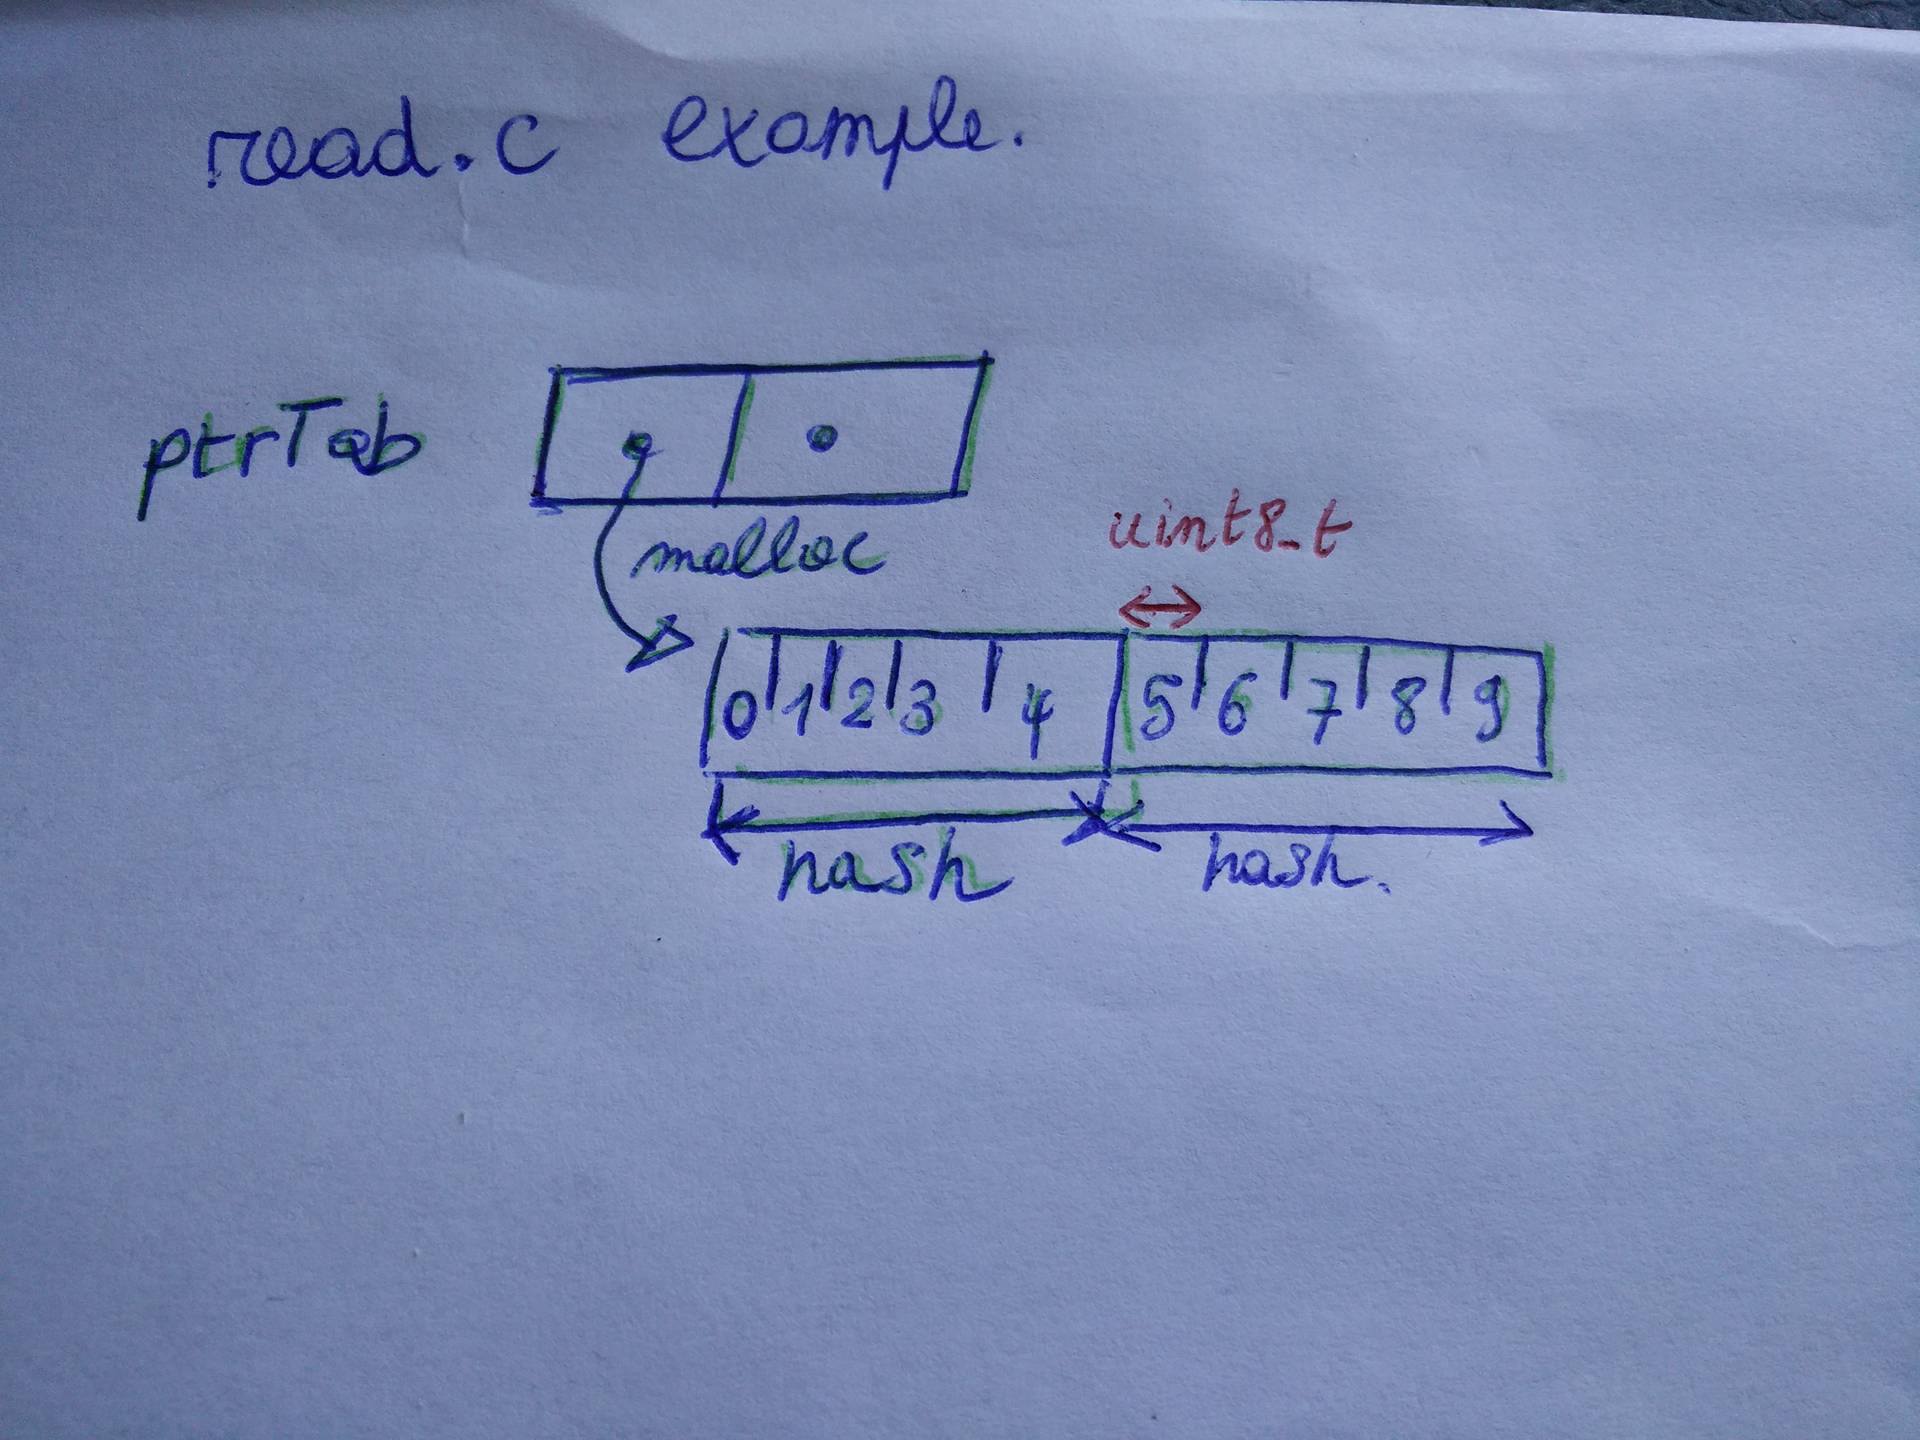 read.c example.
ptrTab
malloc
uint8_t
0 1 2 3 4 5 6 7 8 9
hash hash.